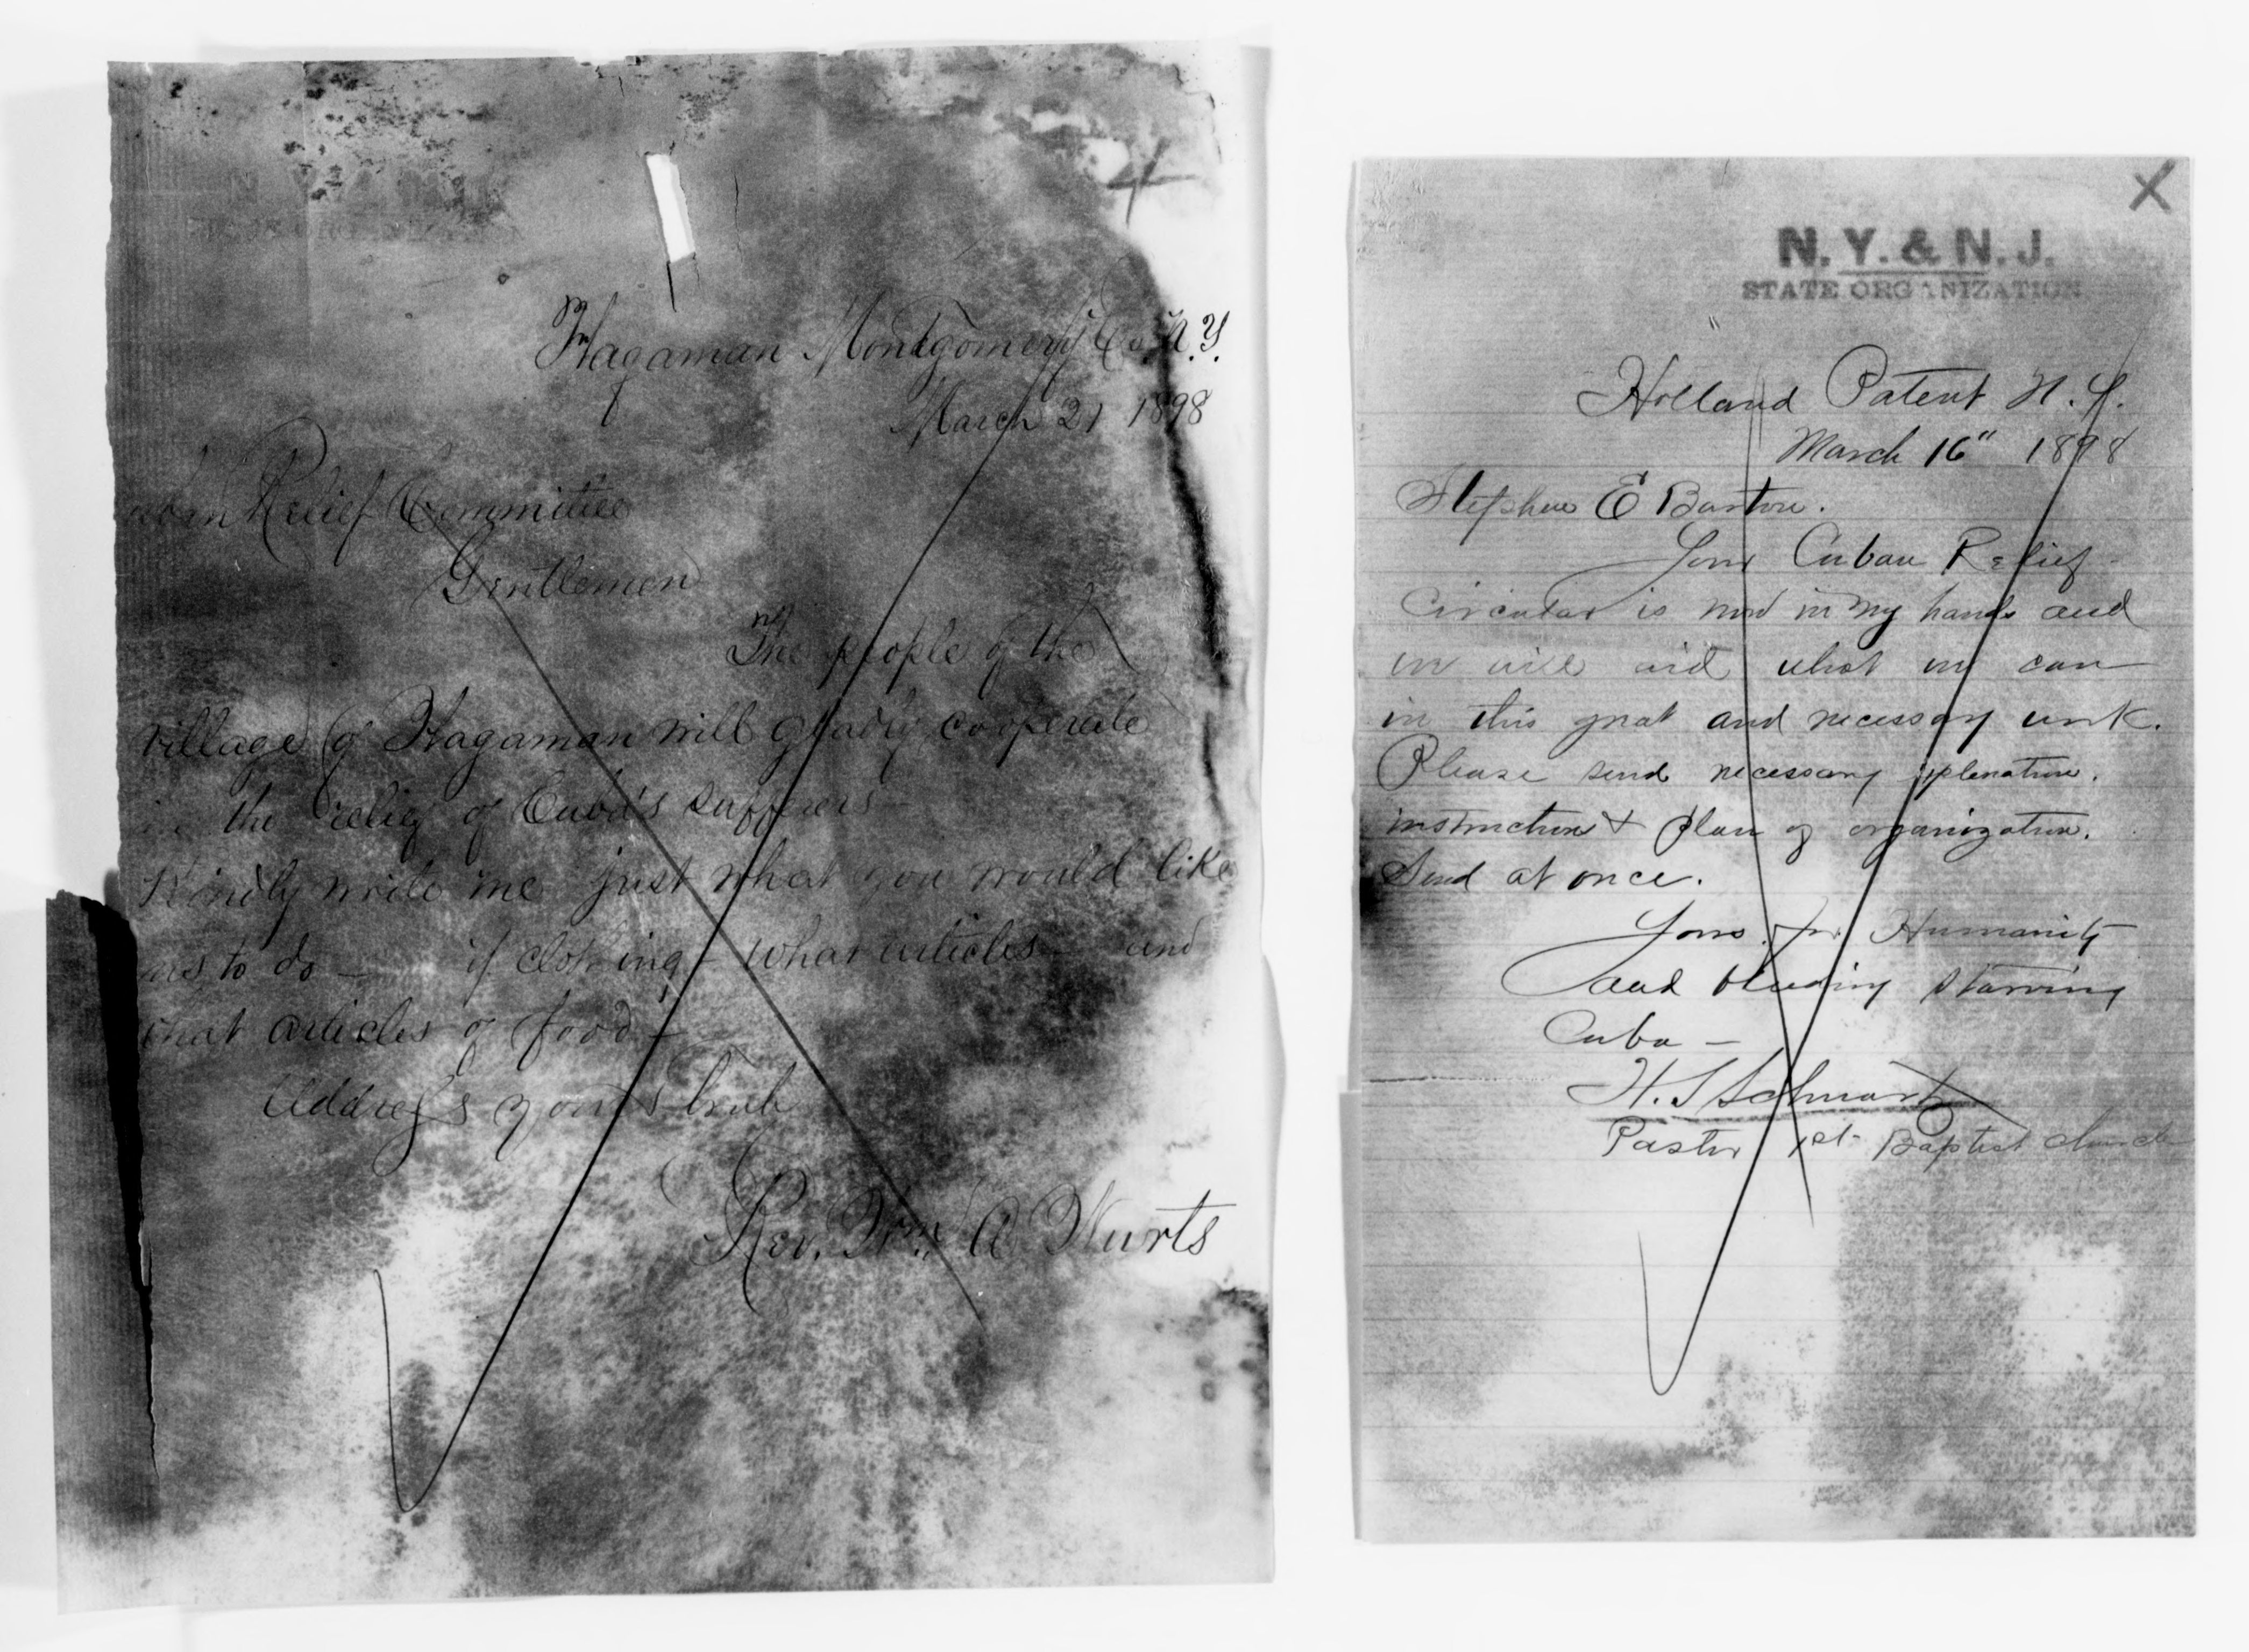 Hagaman Montgomery Co. N.Y.
March 21 1898
Relief Committee
Gentlemen
The people of the
village of Hagaman will gladly cooperate
in the relief of Cuba's sufferers
Kindly write me just what you would like
us to do — if clothing — what articles — and
what articles of food —
Address yours truly
Rev. Wm. A Wurts
X
N. Y. & N. J.
STATE ORGANIZATION
Holland Patent N. Y.
March 16" 1898
Stephen E Barton.
Your Cuban Relief
Circular is now in my hands and
we will aid what we can
in this great and necessary work.
Please send necessary
instructions + Plan of organization.
Send at once.
Yours for Humanity
and bleeding starving
Cuba —
H. S Schwartz
Pastor 1st Baptist Church